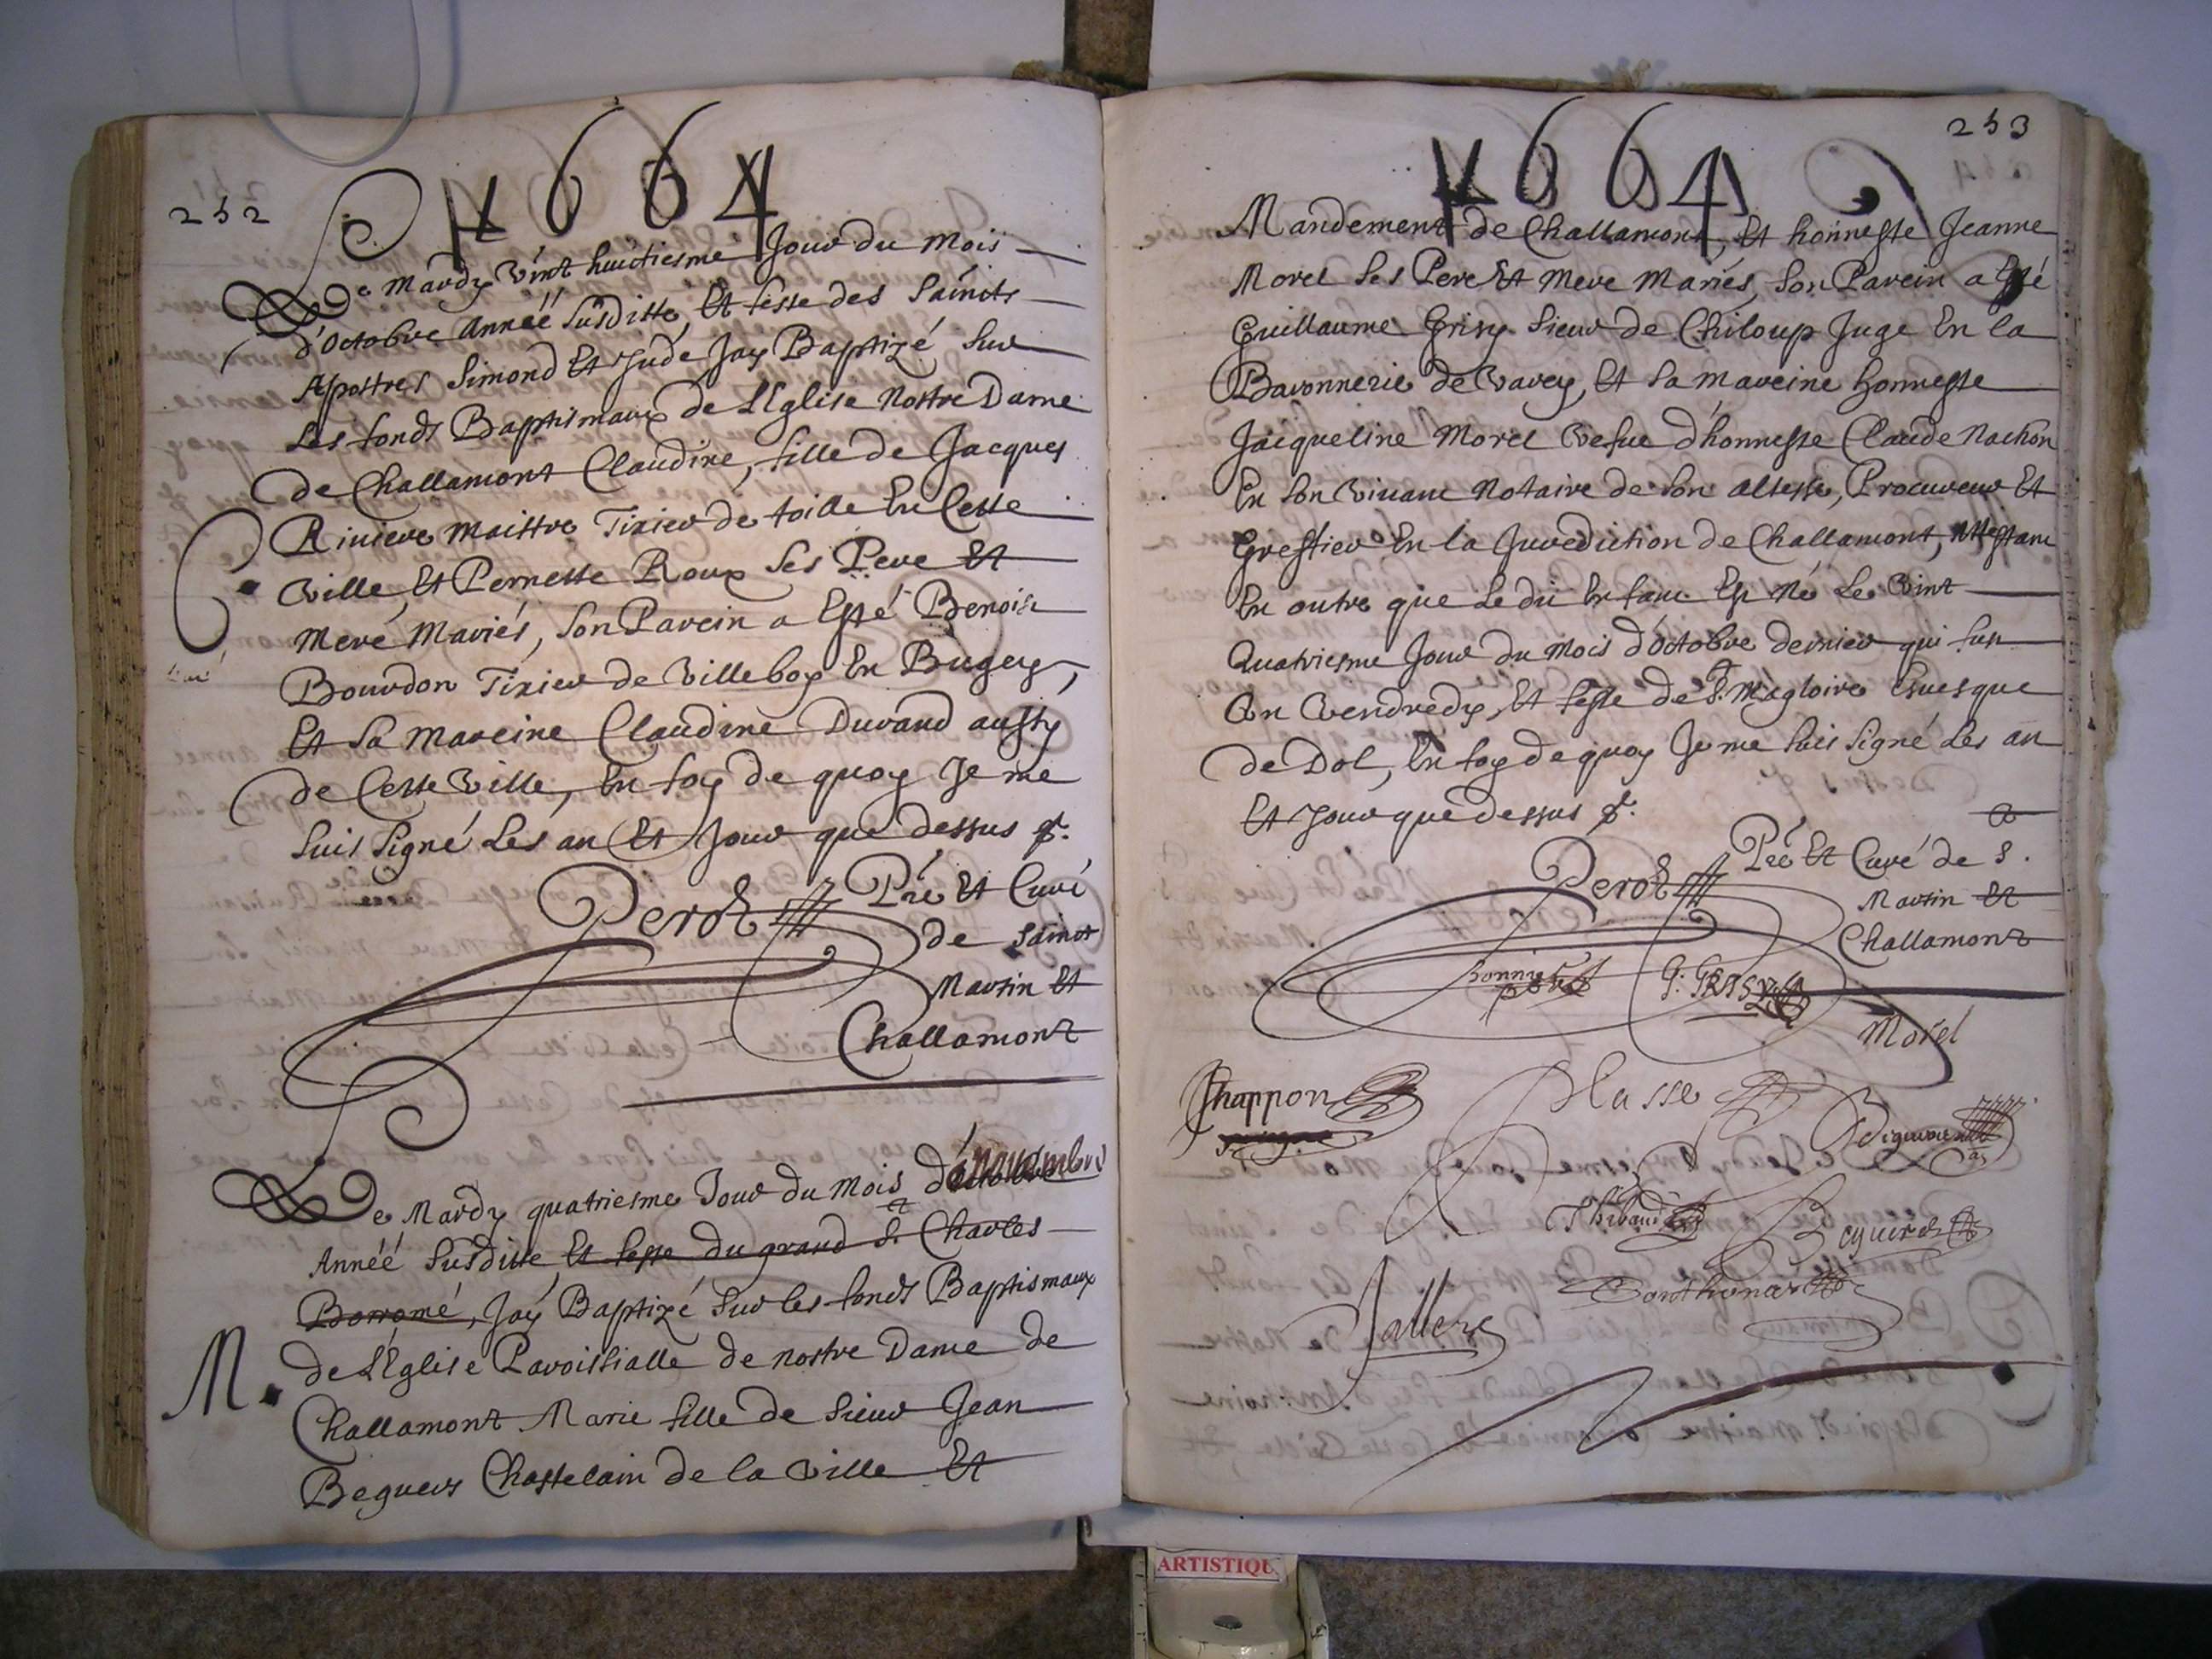 252
1664
Le Mardy Vint huictiesme Jour du Mois
d'Octobre Année susditte, Et feste des Saincts
Apostres Simond Et Jude Jay Baptizé sur
Les fonds Baptismaux de L'Eglise Nostre Dame
de Challamont Claudine, fille de Jacques
C.
Riviere Maistre Tixier de toille En Cette
Ville, Et Pernette Roux Ses Pere Et
Mere Mariés, Son Parein a Esté Benoist
Bourdon Tixier de Villeboy En Bugey,
Et Sa Mareine Claudine Durand aussy
de Cette Ville, En foy de quoy Je me
suis Signé Les an Et Jour que dessus
Perot Pre Et Curé
de Sainct
Martin Et
Challamont
Le Mardy quatriesme Jour du Mois de novembre
Année Susditte Et feste du grand S. Charles
Borromé, Jay Baptizé Sur les fonds Baptismaux
M. de L'Eglise Paroissialle de nostre Dame de
Challamont Marie fille de Sieur Jean
Beguers Chastelain de la Ville Et
253
1664
Mandement de Challamont, Et honneste Jeanne
Morel Ses Pere Et Mere Mariés, Son Parein a Esté
Guillaume Grisy Sieur de Chiloup Juge En la
Baronnerie de Varey, Et Sa Mareine Honneste
Jacqueline Morel Vefue d'honneste Claude Nachon
En Son Vivant Notaire de Son Altesse, Procureur Et
Greffier En la Jurediction de Challamont, Attestant
En outre que Le dit Enfant Est Né Le Vint
Quatriesme Jour du Mois d'Octobre dernier qui fust
Un Vendredy, Et feste de S. Magloire Euesque
de Dol, En foy de quoy Je me suis Signé Les an
Et Jour que dessus
Perot Pre Et Curé de S.
Martin Et
Challamont
G. GRISY
Morel
Chappon
Classe
Thibaud
Beguerd
Jallere
ARTISTIQU